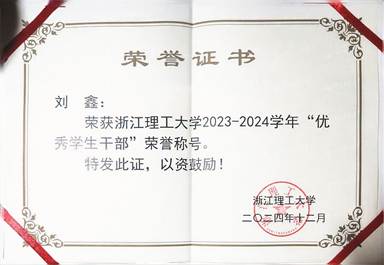 荣誉证书
刘 鑫：
荣获浙江理工大学2023-2024学年“优
秀学生干部”荣誉称号。
特发此证，以资鼓励！
浙江理工大学
二〇二四年十二月